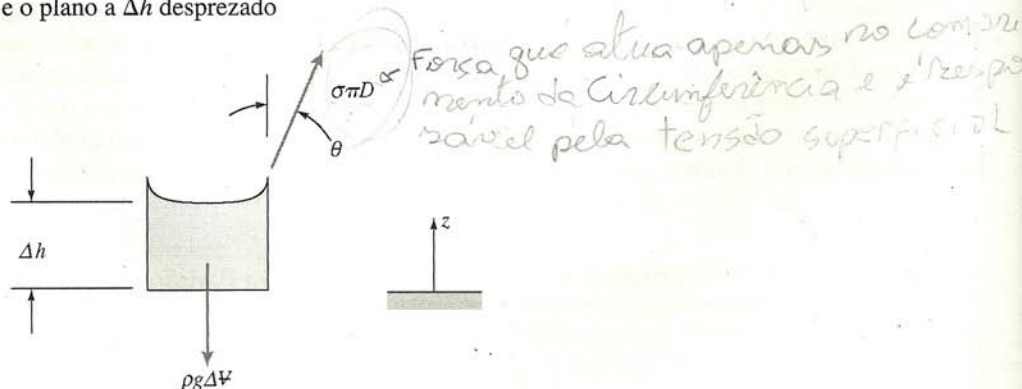 e o plano a Δh desprezado
σπD
Força que atua apenas no compri
mento da Circunferência e é respo
sável pela tensão superficial
θ
z
Δh
ρgΔV